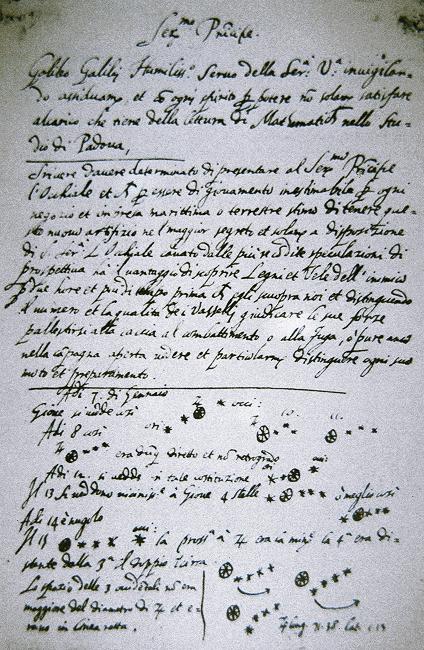 Ser.mo Principe.
Galileo Galilei Humiliss.o Servo della Ser.a V.a invigilan-
do assiduam.te et cõ ogni spirito p potere nõ solam.te satisfare
alcarico che tiene della lettura di Matematich nello Stu-
dio di Padova,
Scrivere davere determinato di presentare al Ser.mo Principe
l'Ochiale et p essere di giovamento inestimabile p ogni
negozio et impresa marittima o terrestre stimo di tenere que-
sto nuovo artifizio nel maggior segreto et solam.te a disposizione
di S. Ser.a L'Ochiale cavato dalle più recõdite speculazioni di
prospettiva hà il vantaggio di scoprire Legni et Vele dell'inimico
p due hore et più di tempo prima ch egli scuopra noi et distinguendo
il numero et la qualità dei Vasselli giudicare le sue forze
pallestirsi alla caccia al combattimento o alla fuga, o pure anco
nella cãpagna aperta vedere et particolarm.te distinguere ogni suo
moto et preparamento.
Adi 7. di Gennaio
Giove si vede così
Adi 8 così ori
era dũq diretto et nõ retrogrado
Adi 12. si vedde in tale costituzione
Il 13 si veddono vicinissi.e à Giove 4 stelle ò meglio così
Adi 14 è nugolo
Il 15 la pross.a à era la min.e la 4.a era di-
stante dalla 3.a il doppio
Lo spazio delle 3 occidentali nõ era
maggiore del diametro di et e-
rano in linea retta.